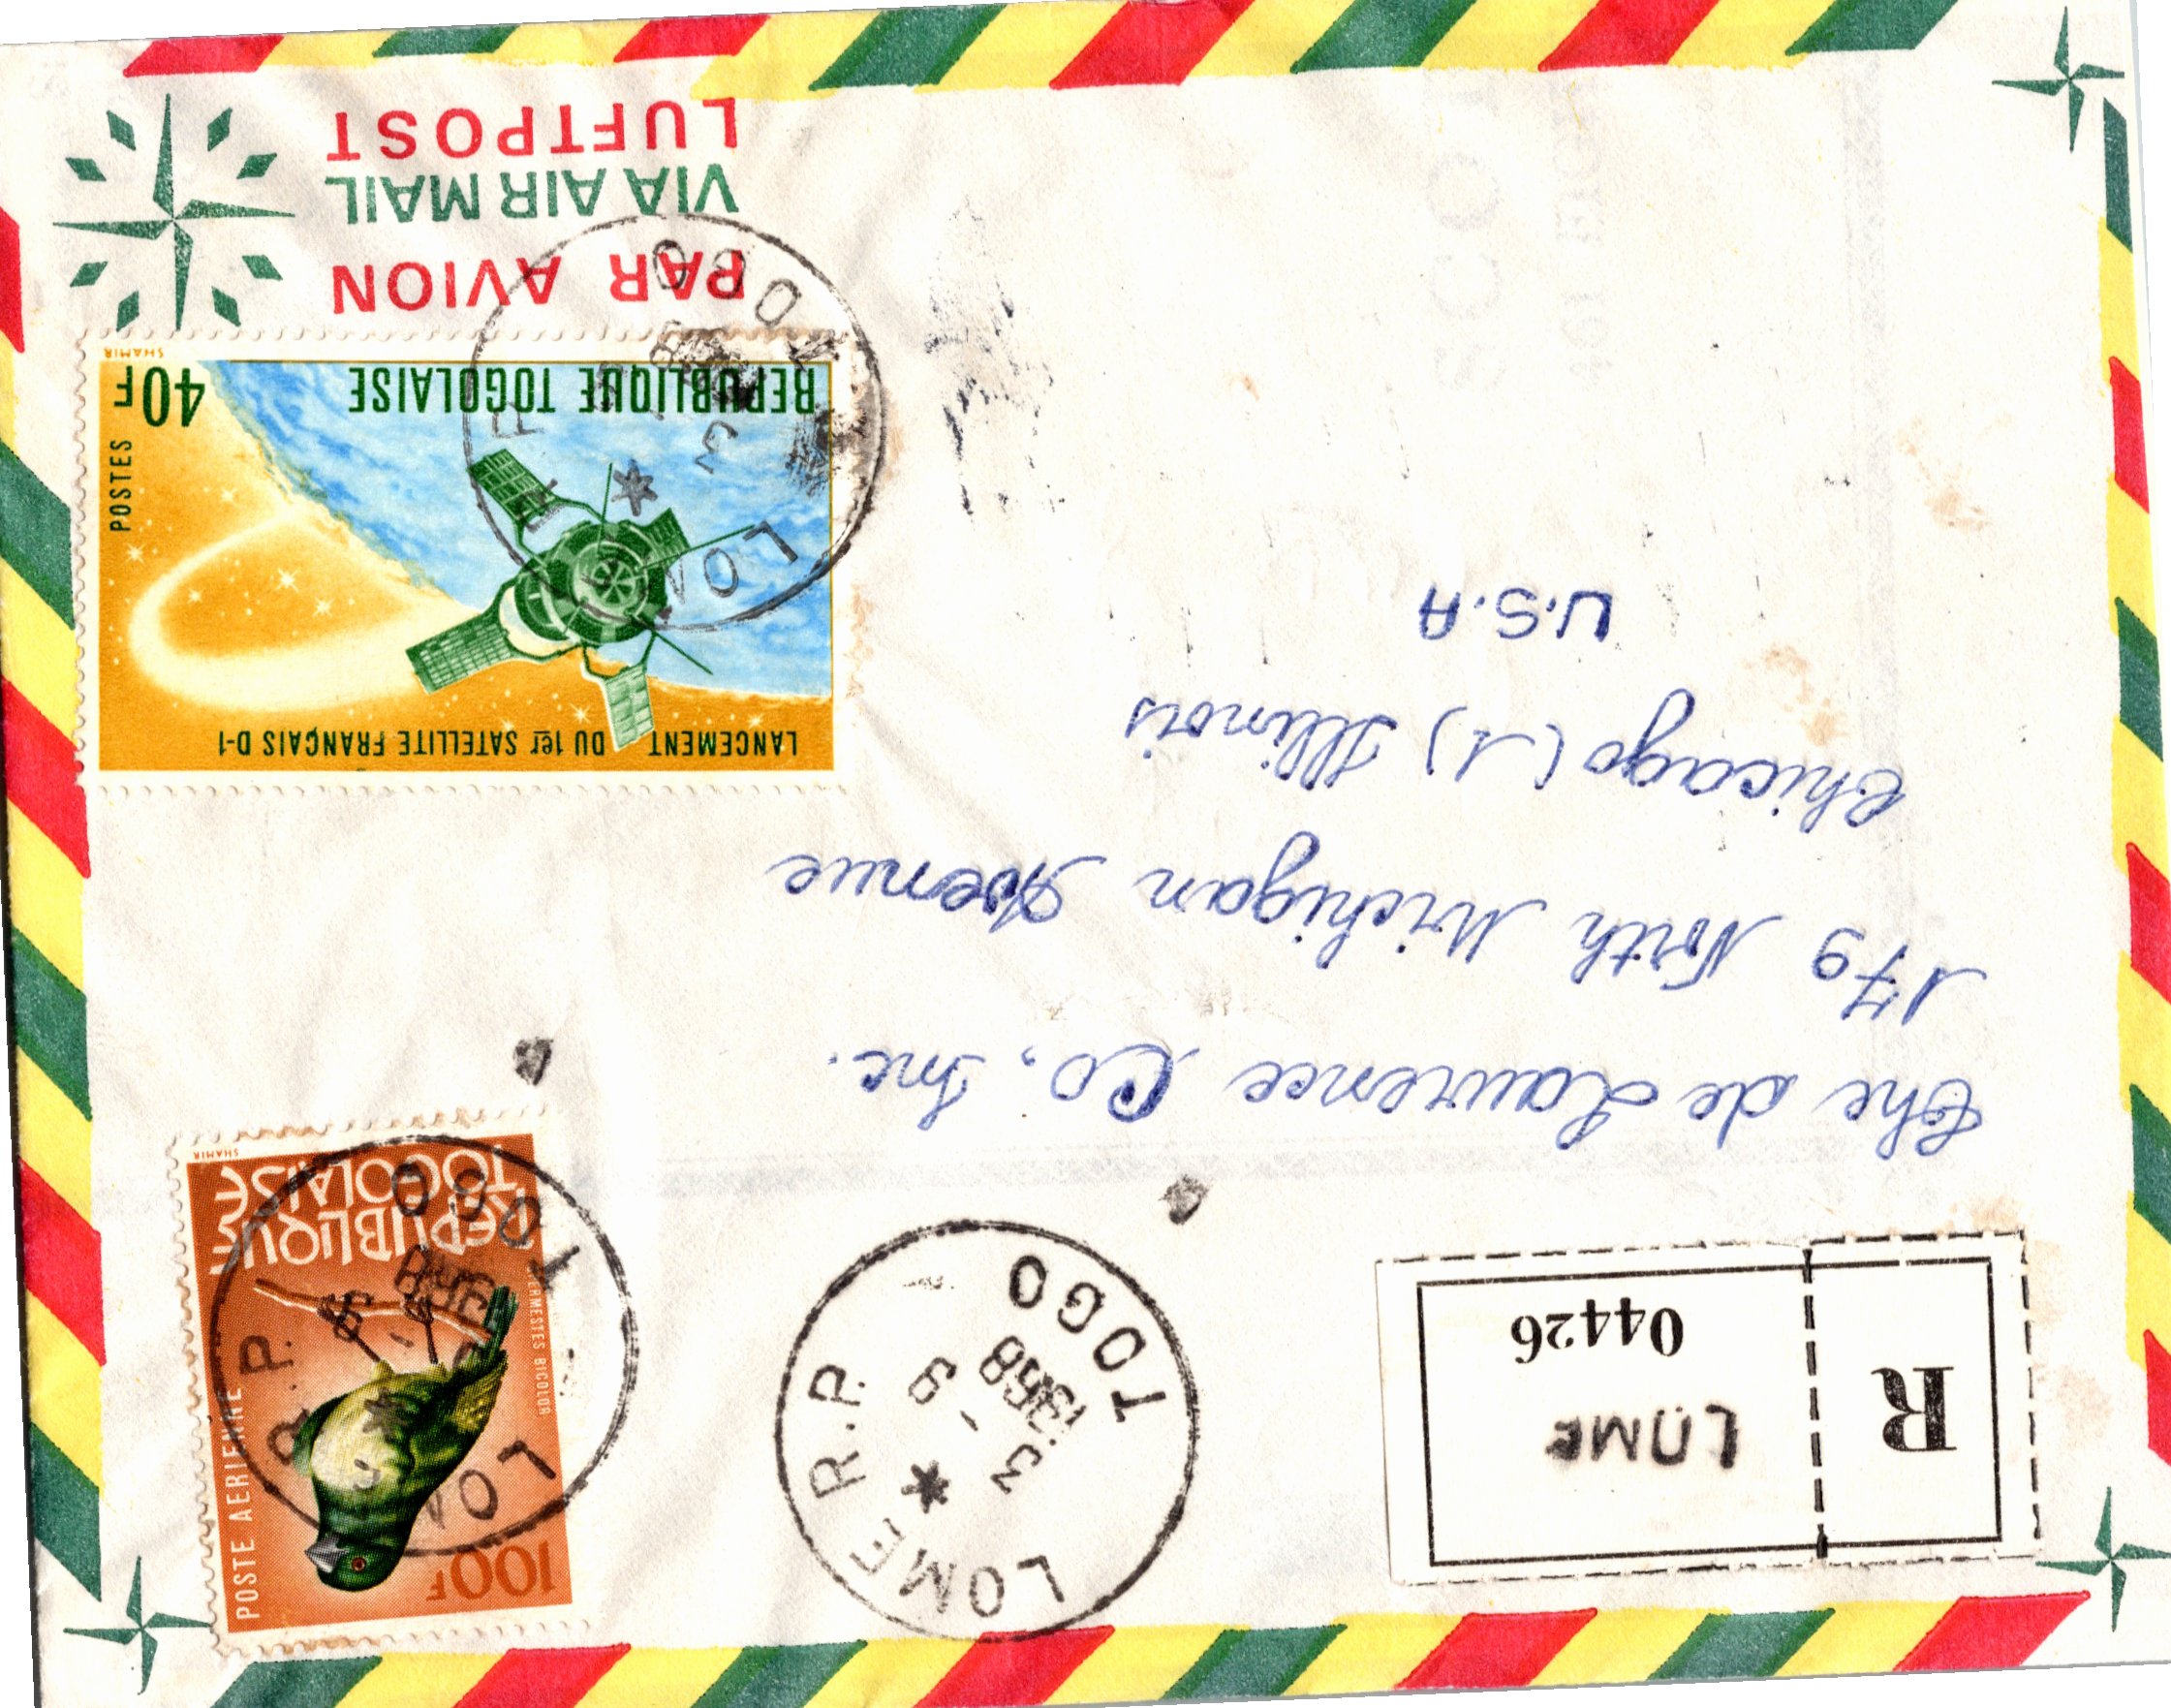 R
LOME
04426
LOME R.P.
3 - 9
1968
TOGO
100F
POSTE AERIENNE
SPERMESTES BICOLOR
REPUBLIQUE
TOGOLAISE
SHAMIR
LOME R.P.
TOGO
The de Laurence Co, Inc.
179 North Michigan Avenue
Chicago (1) Illinois
U.S.A
LANCEMENT DU 1er SATELLITE FRANÇAIS D-1
POSTES
REPUBLIQUE TOGOLAISE
40F
SHAMIR
LOME R.P.
TOGO
PAR AVION
VIA AIR MAIL
LUFTPOST